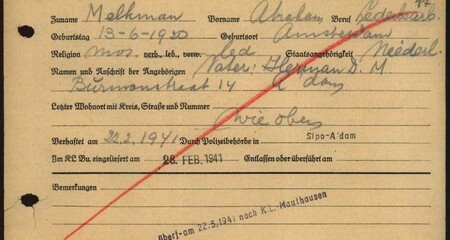 Zuname Melkman Vorname Abraham Beruf Lederarb.
Geburtstag 13-6-1920 Geburtsort Amsterdam
Religion mos. verh., led., verw. led Staatsangehörigkeit Niederl.
Namen und Anschrift der Angehörigen Vater: Herman D. M.
Burmanstraat 14 A'dam
Letzter Wohnort mit Kreis, Straße und Nummer
Wie oben
Verhaftet am 22.2.1941 Durch Polizeibehörde in Sipo-A'dam
Im KL Bu. eingeliefert am 28. FEB. 1941 Entlassen oder überführt am
Bemerkungen
überf. am 22.5.1941 nach K.L.-Mauthausen